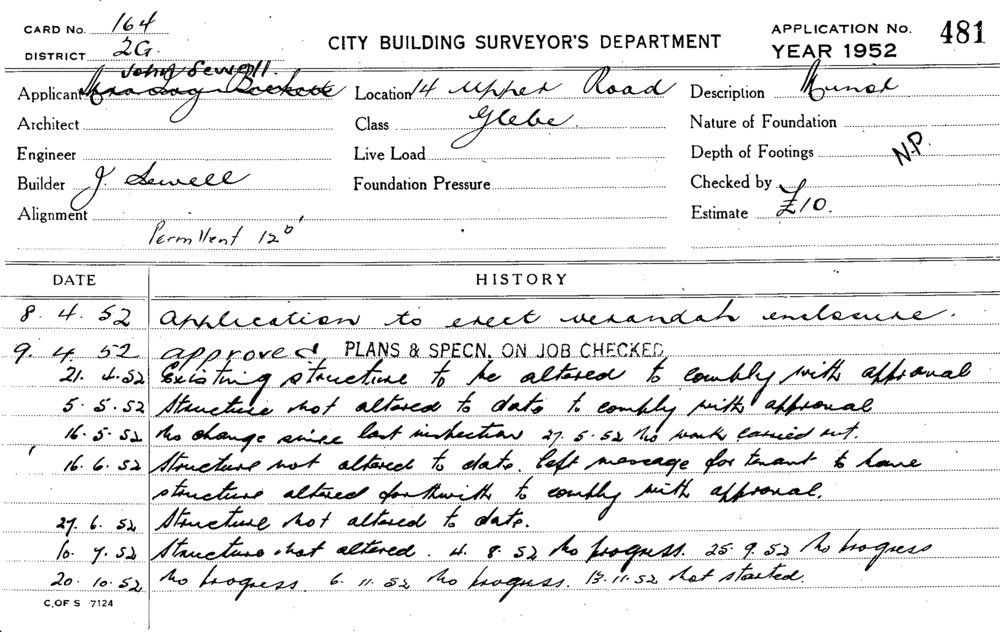 CARD No. 164
DISTRICT 2G.
CITY BUILDING SURVEYOR'S DEPARTMENT
APPLICATION No. 481
YEAR 1952
John Sewell.
Applicant
Location 14 Upper Road
Description Minor
Architect
Class Glebe.
Nature of Foundation
Engineer
Live Load
Depth of Footings N.P.
Builder J. Sewell
Foundation Pressure
Checked by
Alignment
Estimate £10.
Permillent 12
DATE HISTORY
8. 4. 52 Application to erect verandah enclosure.
9. 4. 52 approved PLANS & SPECN. ON JOB CHECKED
21. 4. 52 Existing structure to be altered to comply with approval
5. 5. 52 Structure not altered to date to comply with approval
16. 5. 52 No change since last inspection 27. 5. 52 No work carried out.
16. 6. 52 Structure not altered to date. left message for tenant to have
structure altered forthwith to comply with approval.
27. 6. 52 Structure not altered to date.
10. 7. 52 Structure not altered. 4. 8. 52 No progress. 25. 9. 52 No progress
20. 10. 52 No progress. 6. 11. 52 No progress. 13. 11. 52 Not started.
C. OF S 7124